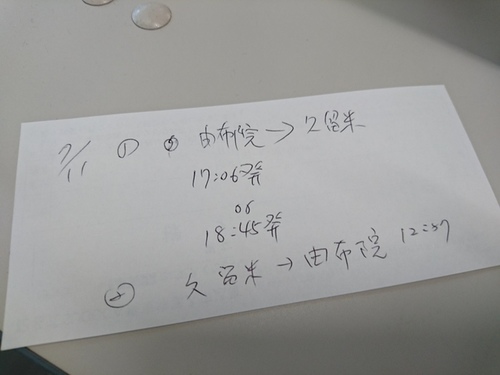 7/11 ① 由布院→久留米
17:06発
or
18:45発
② 久留米→由布院 12:37